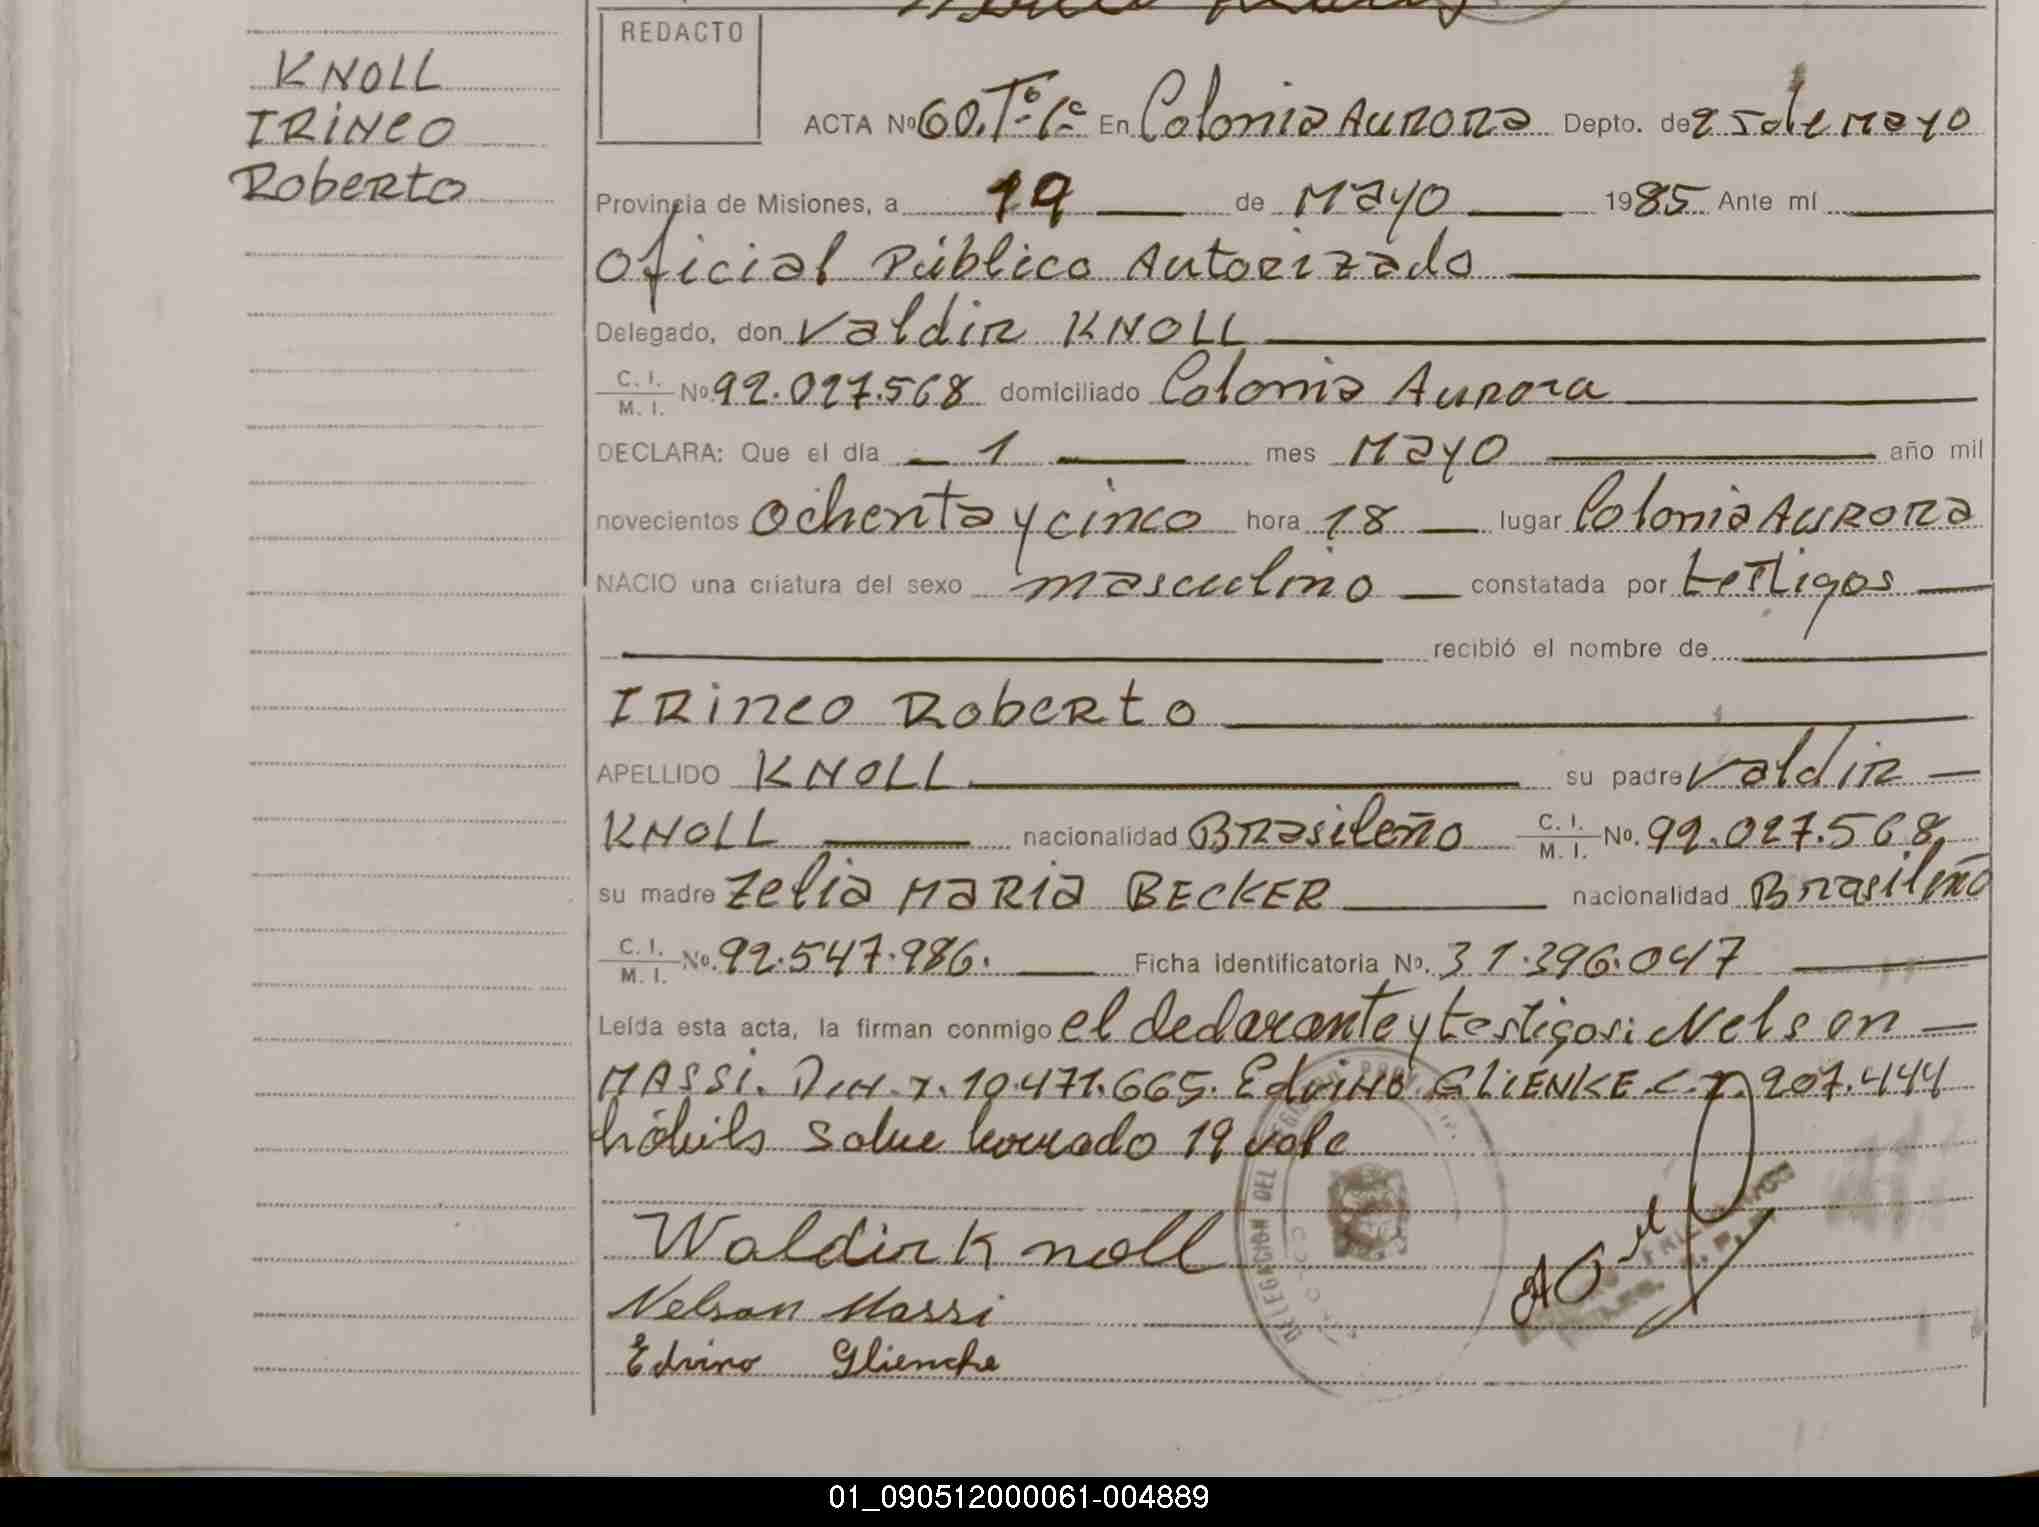 KNOLL
IRINEO
Roberto
REDACTO
ACTA Nº 60. Tº 1º En Colonia Aurora Depto. de 25 de Mayo
Provincia de Misiones, a 19 de Mayo 1985 Ante mí
Oficial Público Autorizado
Delegado, don Valdir KNOLL
C. I. / M. I. Nº 92.027.568 domiciliado Colonia Aurora
DECLARA: Que el día 1 mes Mayo año mil
novecientos ochenta y cinco hora 18 lugar Colonia Aurora
NACIO una criatura del sexo masculino constatada por testigos
recibió el nombre de
IRineo Roberto
APELLIDO KNOLL su padre Valdir
KNOLL nacionalidad Brasileño C. I. / M. I. Nº. 92.027.568
su madre Zelia MaRia BECKER nacionalidad Brasileño
C. I. / M. I. Nº. 92.547.986. Ficha identificatoria Nº. 31.396.047
Leída esta acta, la firman conmigo el declarante y testigos: Nelson
MASSI. D.N.I. 10.471.665. Edvino GLIENKE C.I. 207.444
hábiles salve borrado 19 vale
Waldir Knoll
Nelson Massi
Edvino Glienche
DELEGACION DEL
01_090512000061-004889